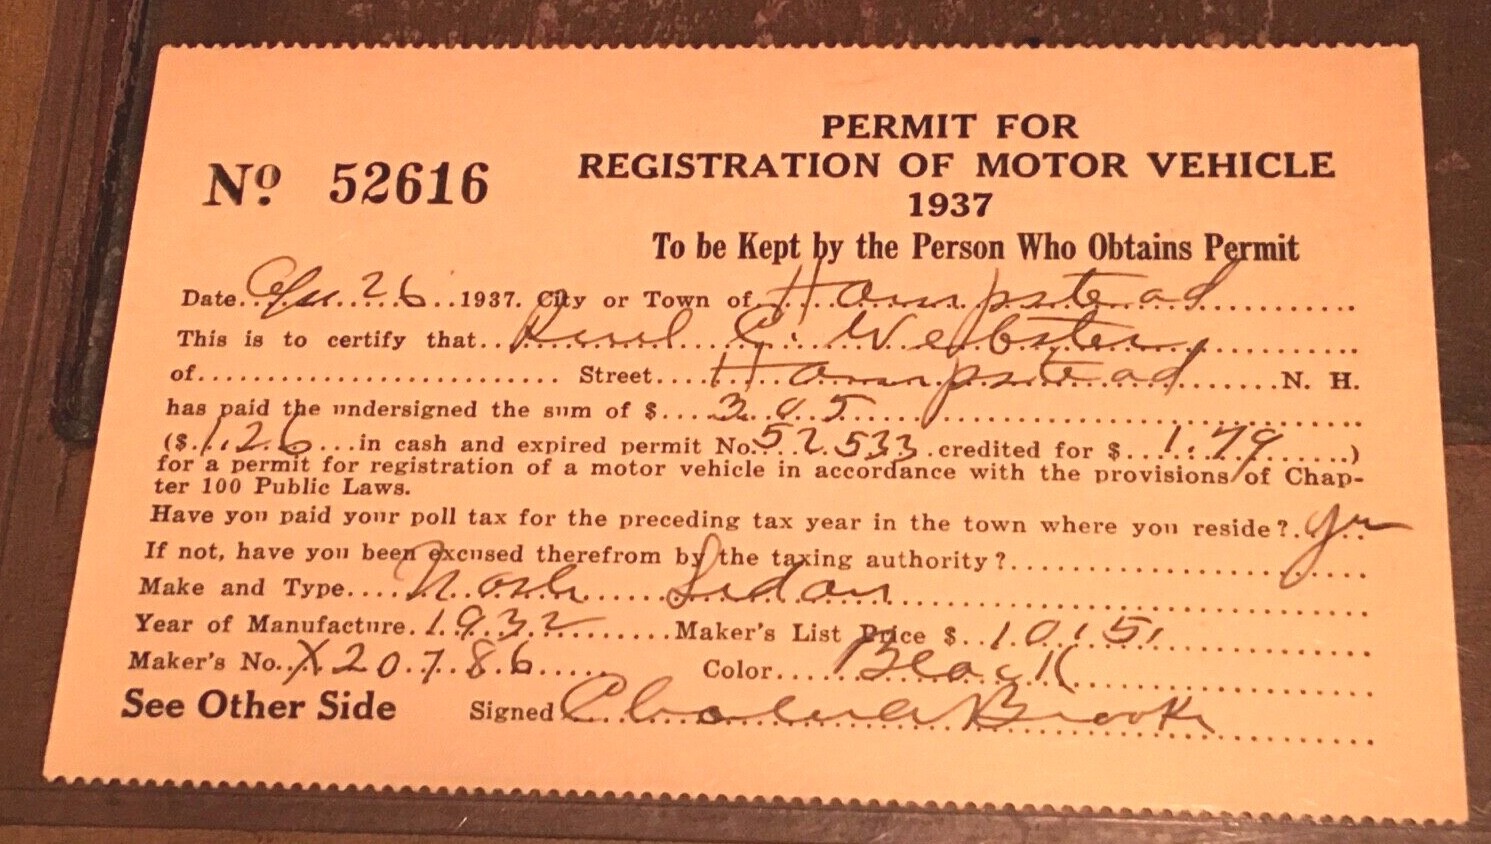 PERMIT FOR
Nº 52616 REGISTRATION OF MOTOR VEHICLE
1937
To be Kept by the Person Who Obtains Permit
Date. 26. 1937. City or Town of Hampstead
This is to certify that C. Webster
of Street Hampstead N. H.
has paid the undersigned the sum of $ 3.05
($ 1.26 in cash and expired permit No. 52533 credited for $ 1.79)
for a permit for registration of a motor vehicle in accordance with the provisions of Chap-
ter 100 Public Laws.
Have you paid your poll tax for the preceding tax year in the town where you reside? yes
If not, have you been excused therefrom by the taxing authority?
Make and Type Nash Sedan
Year of Manufacture. 1932 Maker's List Price $ 1015
Maker's No. X20786 Color Black
See Other Side Signed Brook